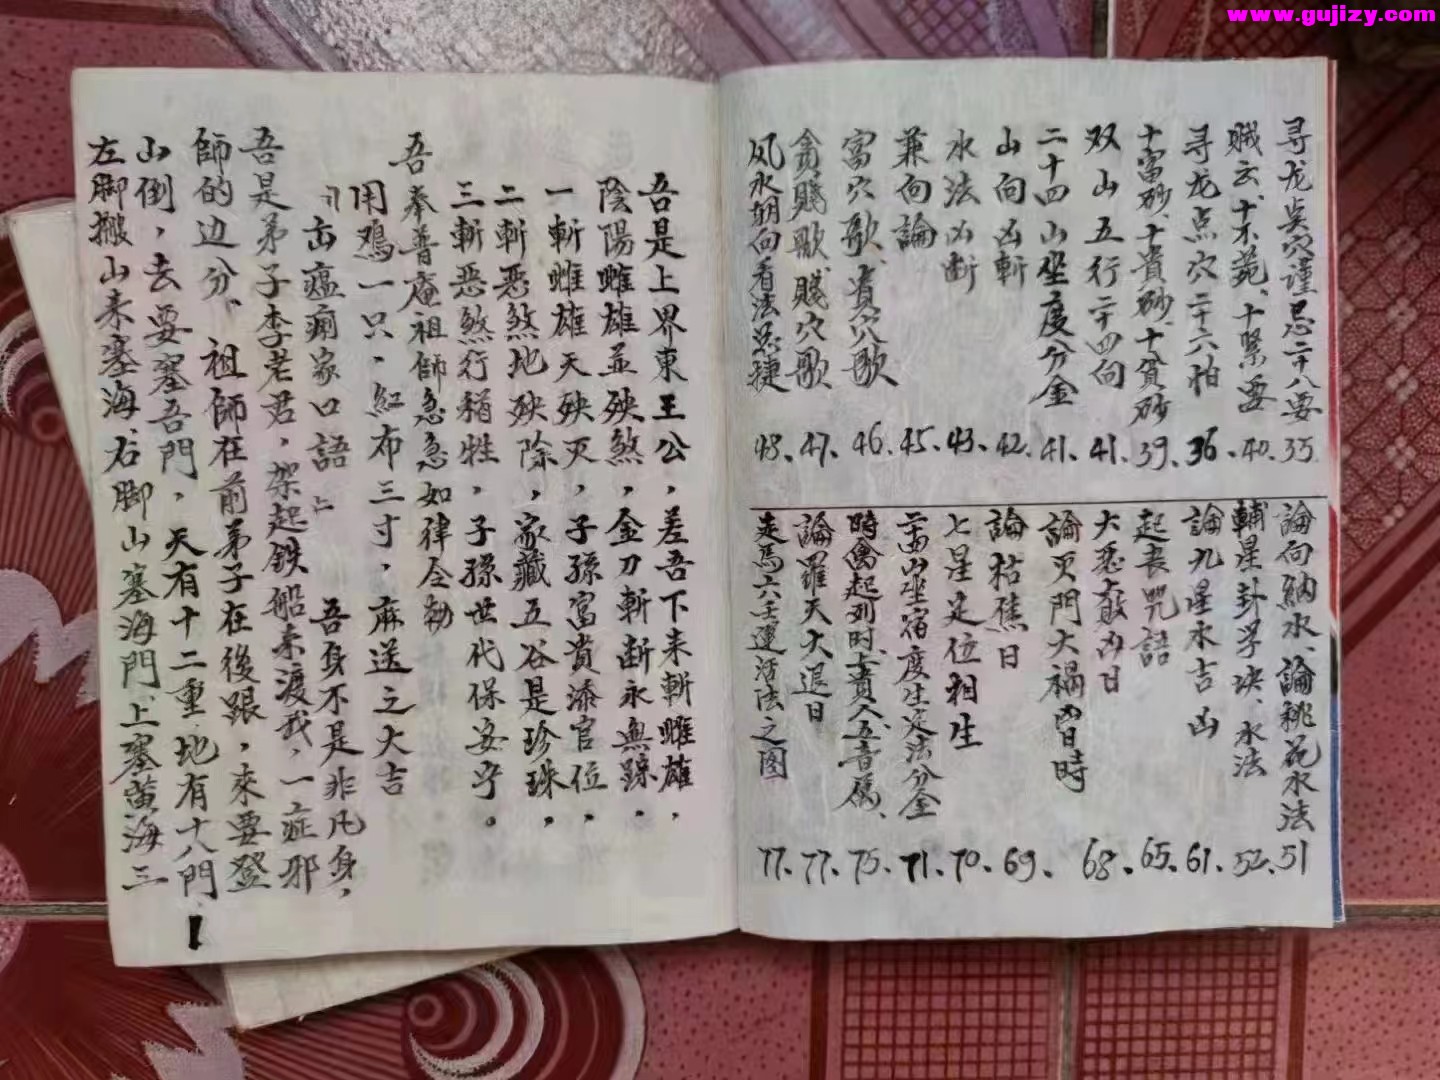 www.gujizy.com
寻龙点穴谨忌二十八要 35
賊云、十不葬、十緊要 40
寻龙点穴二十六怕 36
十富砂、十貴砂、十貧砂 39
双山五行二十四向 41
二十四山坐度分金 41
山向凶斬 42
水法凶断 43
兼向論 45
富穴歌、貴穴歌 46
貪賤歌 賤穴歌 47
风水朝向看法总捷 48
論向納水、論桃花水法 51
輔星卦学决、水法 52
論九星水吉凶 61
起丧咒語 65
大恶敌凶日 68
論灭門大禍凶日時
論枯焦日 69
七星定位相生 70
二十四山坐宿度生定法分金 71
時禽起列時、貴人、五音属、 75
論羅天大退日 77
走馬六壬運活法之图 77
吾是上界東王公，差吾下来斬雌雄，
陰陽雌雄並殃煞，金刀斬断永無踪．
一斬雌雄天殃灭，子孫富貴添官位，
二斬恶煞地殃除，家藏五谷是珍珠，
三斬恶煞行稍牲，子孫世代保安宁。
吾奉普庵祖師急急如律令勅
用鸡一只，紅布三寸，麻送之大吉
出瘟痢家口語
吾身不是非凡身，
吾是弟子李老君，架起鉄船来渡我，一症邪
師的边分、祖師在前弟子在後跟，來要登
山倒，去要塞吾門，天有十二重地有十八門
左脚搬山来塞海、右脚山塞海門、上塞黄海三
1